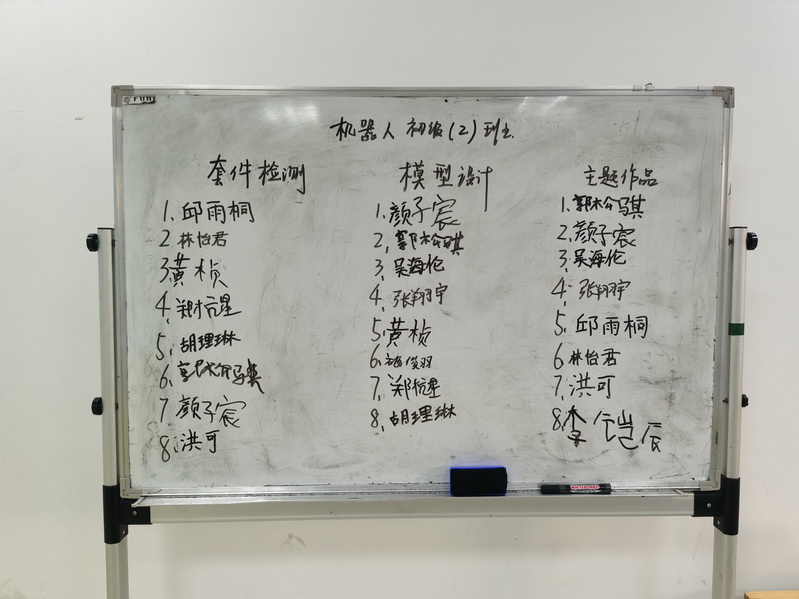 机器人初级(2)班
套件检测
1.邱雨桐
2.林怡君
3.黄桢
4.郑杭星
5.胡理琳
6.郭松骐
7.颜子宸
8.洪可
模型设计
1.颜子宸
2.郭松骐
3.吴海伦
4.张翔宇
5.黄桢
6.俊羽
7.郑杭星
8.胡理琳
主题作品
1.郭松骐
2.颜子宸
3.吴海伦
4.张翔宇
5.邱雨桐
6.林怡君
7.洪可
8.李恺辰